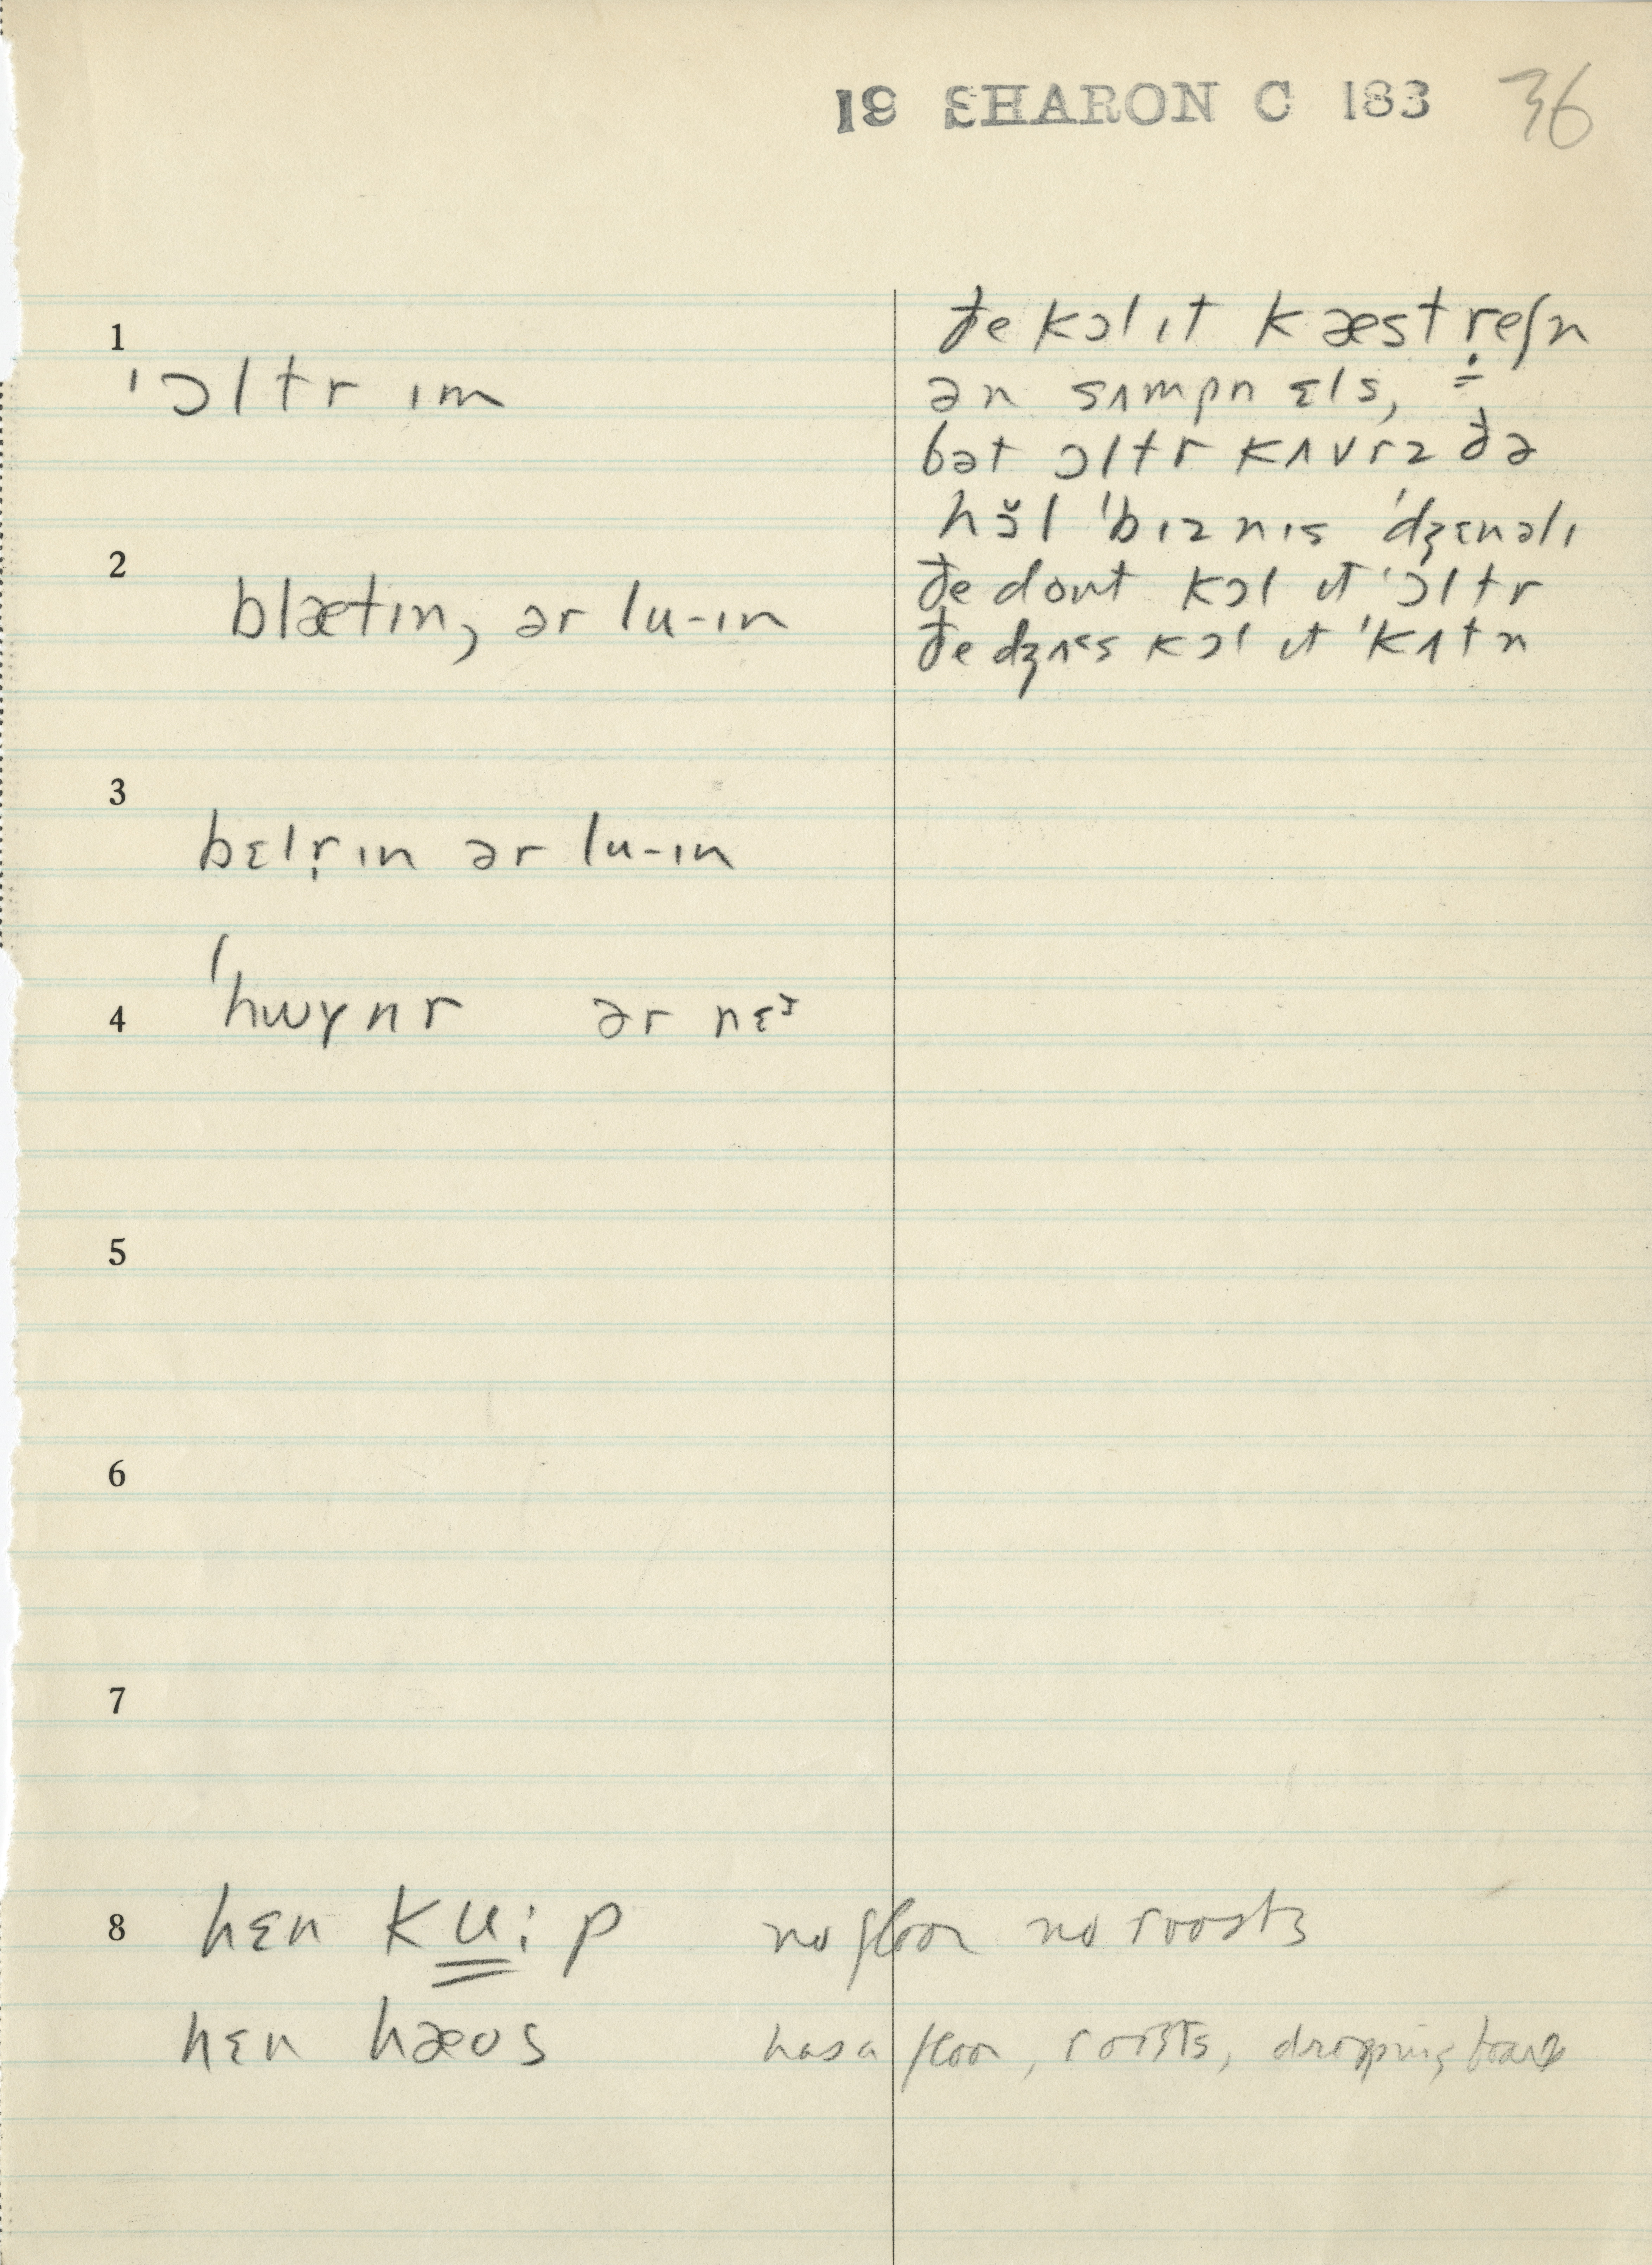 19 SHARON C 183 36
1
ˈɔltr ɪm
ðe kɔl ɪt kæstreʃn
ən sʌmpn ɛls,
bət ɔltr kʌvrz ðə
hŏl ˈbɪznɪs ˈdʒɛnəlɪ
ðe dont kɔl ɪt ˈɔltr
ðe dʒʌs kɔl ɪt ˈkʌtn
2
blætɪn, ər lu-ɪn
3
bɛlr̩ɪn ər lu-ɪn
4
ˈhwɤnr ər nɛᵊ
5
6
7
8
hɛn ku:p no floor no roosts
hɛn hæʊs has a floor, roosts, dropping board